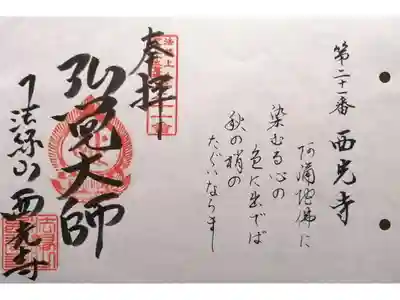 第二十一番 西光寺
阿弥陀佛に
染むる心の
色に出でば
秋の梢の
たぐいならまし
奉拝
弘覚大師
法縁山 西光寺